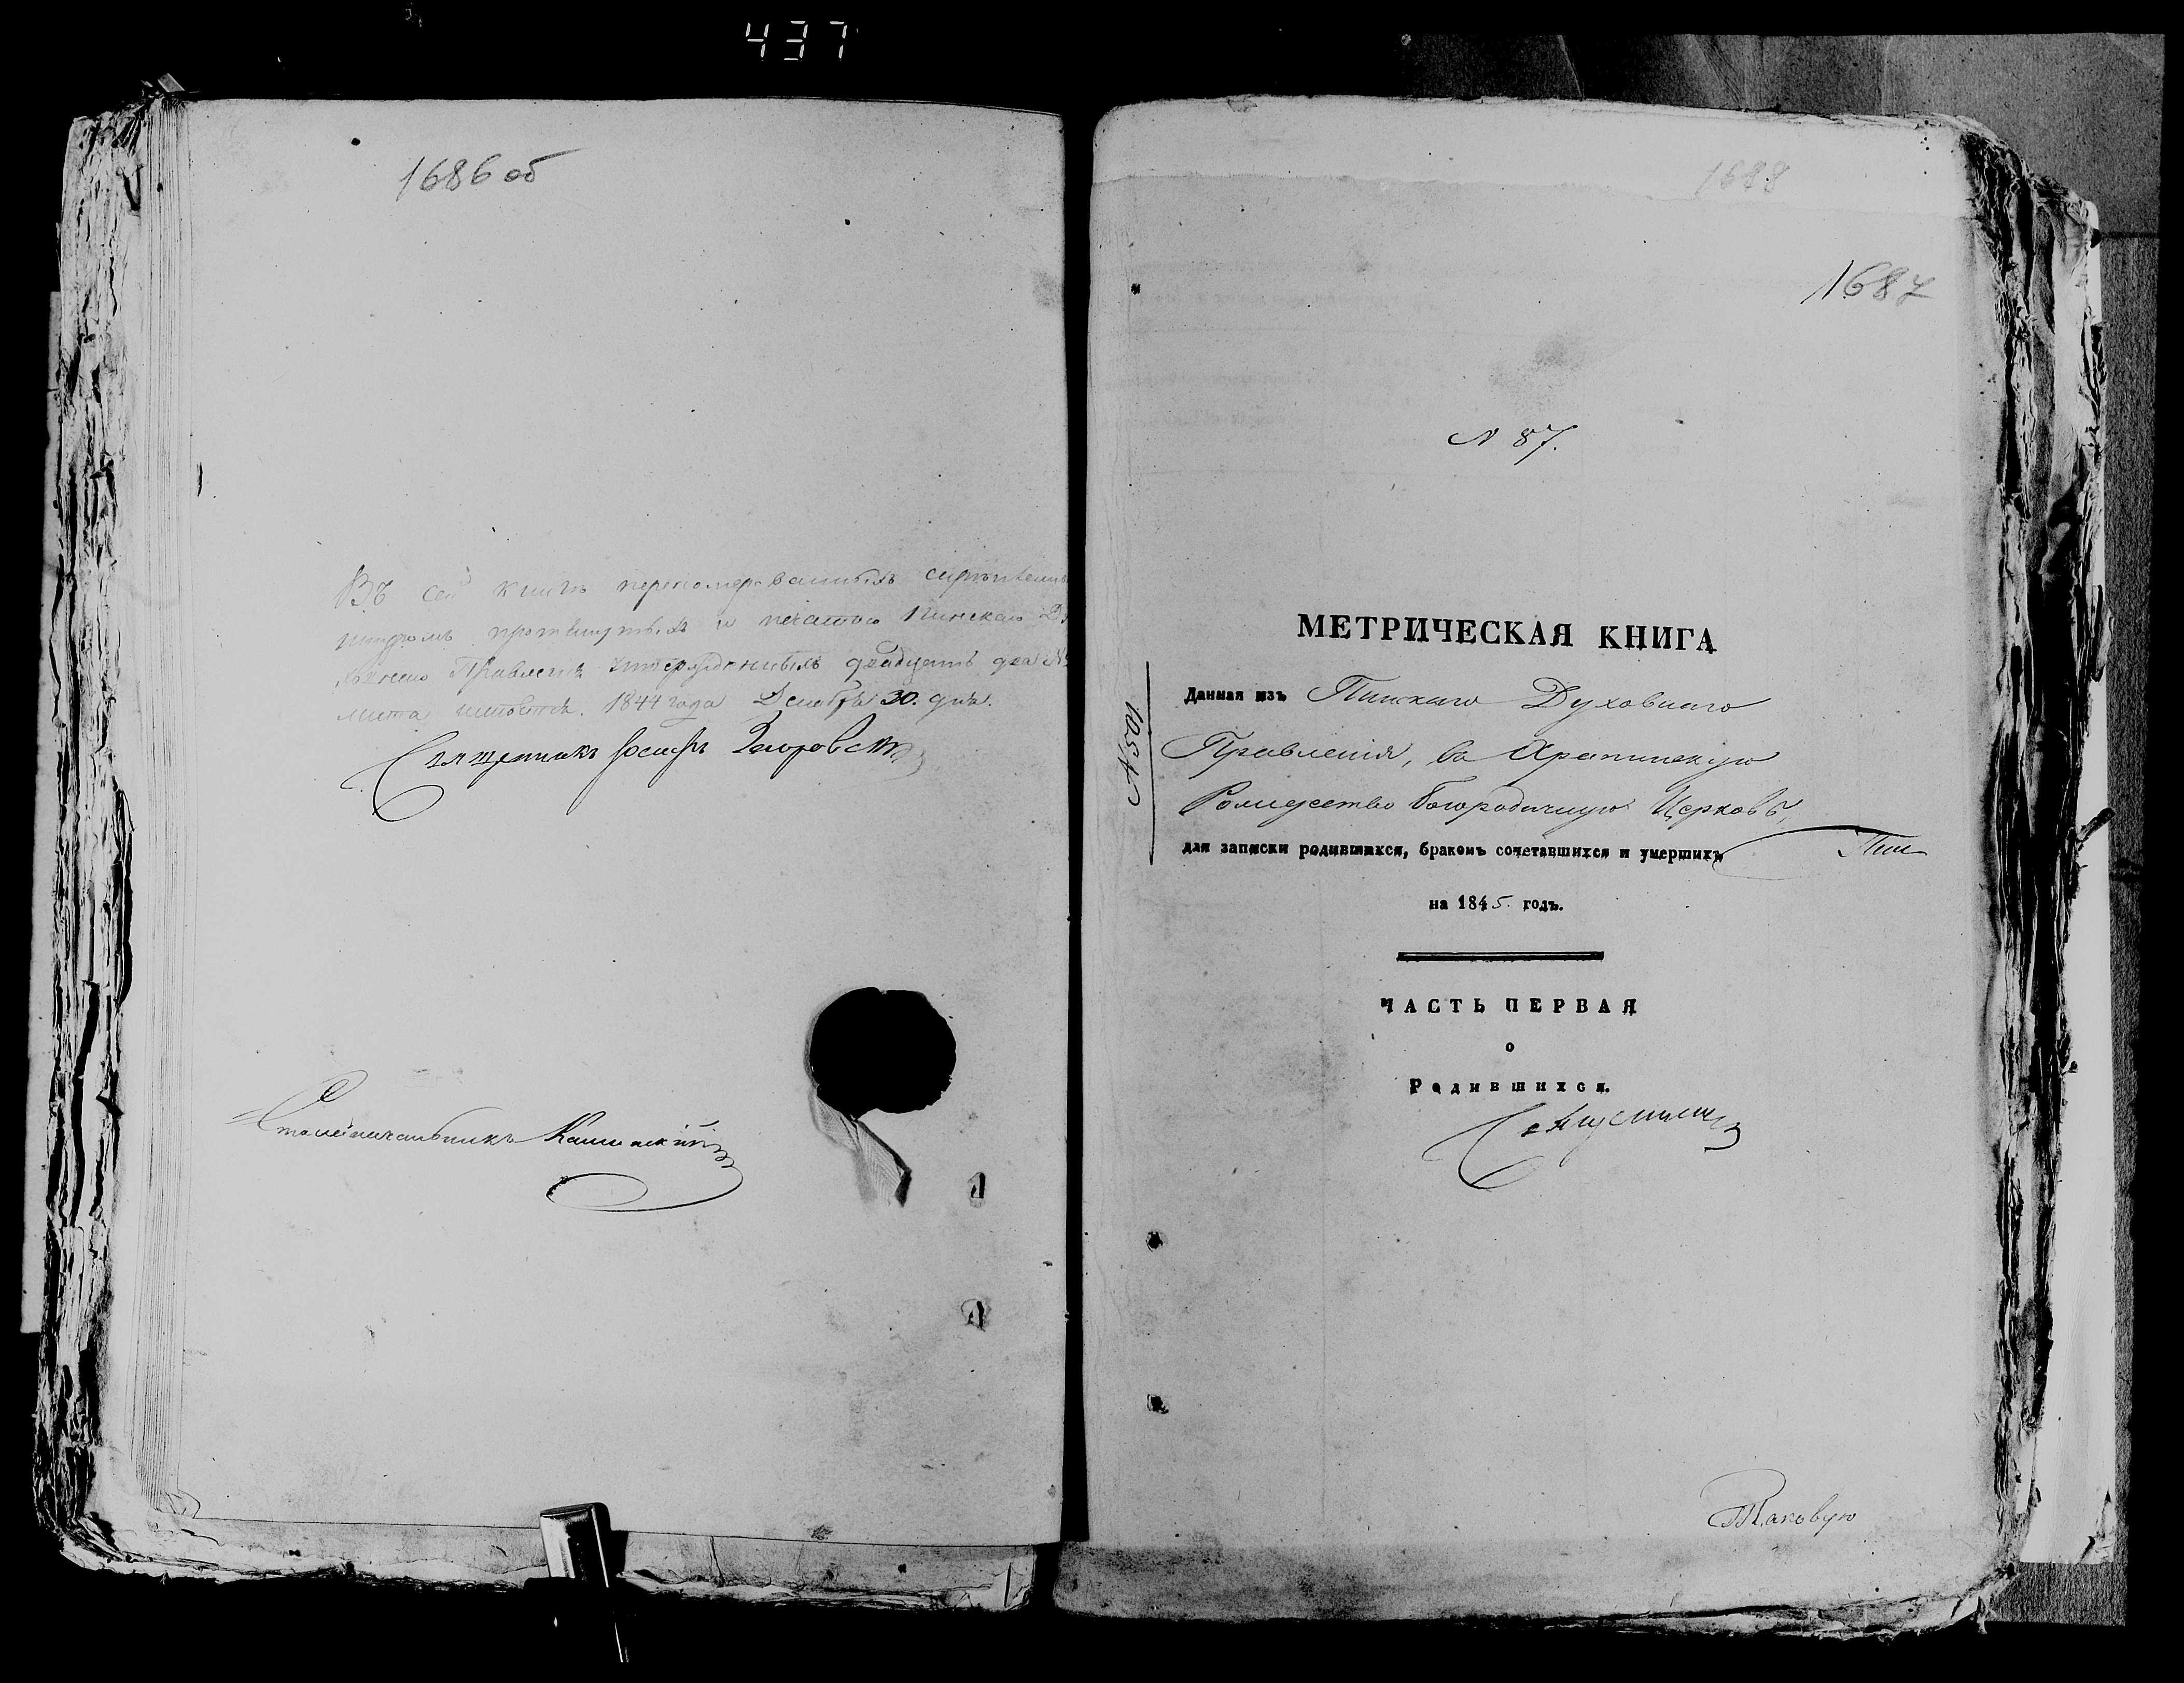 437
1686 об
Въ сей книгѣ перенумерованныхъ скрѣпленныхъ
шнуромъ протянутыхъ и печатью Пинскаго Ду
ховнаго Правленія утвержденныхъ двадцать два
листа 1844 года Декабря 30. дня.
Священникъ Іосифъ
Столоначальникъ
1688
1687
N 87.
МЕТРИЧЕСКАЯ КНИГА
Данная изъ Пинскаго Духовнаго
Правленія, въ Храпинскую
Рождество Богородичную Церковь,
для записки родившихся, бракомъ сочетавшихся и умершихъ
на 1845. годъ.
N 501
ЧАСТЬ ПЕРВАЯ
о
Родившихся.
Таковую